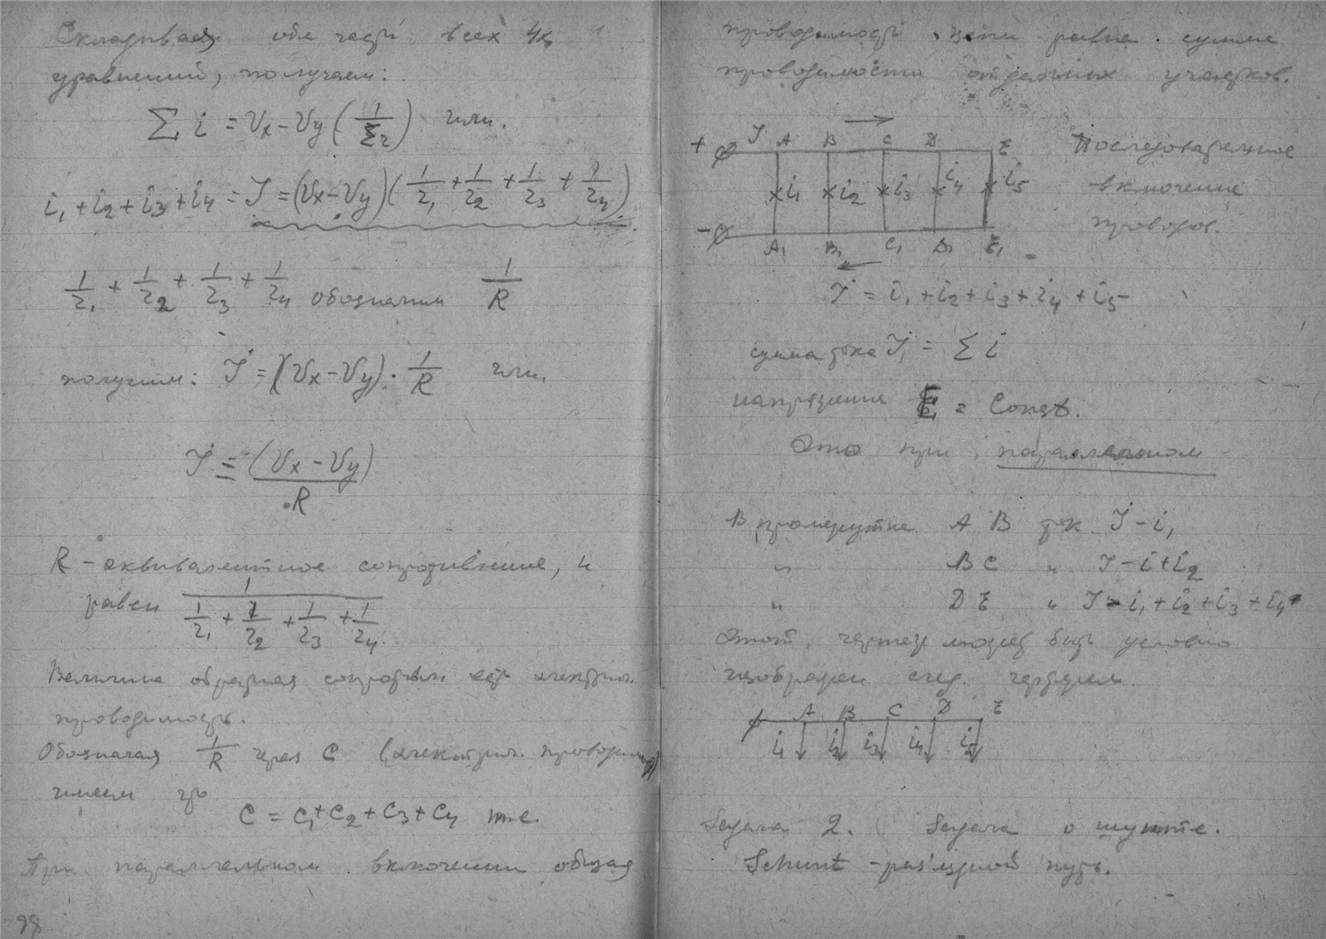 Складывая обе части всех 4х
уравнений, получаем:
∑ i = Vx – Vy (1/∑r) или.
i₁ + i₂ + i₃ + i₄ = J = (Vx – Vy)(1/r₁ + 1/r₂ + 1/r₃ + 1/r₄)
1/r₁ + 1/r₂ + 1/r₃ + 1/r₄ обозначим 1/R
получим: J = (Vx – Vy) · 1/R или.
J = (Vx – Vy)/R
R – эквивалентное сопротивление, и
равен 1/(1/r₁ + 1/r₂ + 1/r₃ + 1/r₄)
Величина обратная сопротивл. есть электрич.
проводимость.
Обозначая 1/R через C (электрич. проводимость)
имеем что
C = C₁ + C₂ + C₃ + C₄ т.е.
При параллельном включении общая
98
проводимость цепи равна сумме
проводимости отдельных участков.
+ J A B C D E
i₁ i₂ i₃ i₄ i₅
– A₁ B₁ C₁ D₁ E₁
Последовательное
включение
проводов.
J = i₁ + i₂ + i₃ + i₄ + i₅
сумма тока J₁ = ∑ i
напряжение E₁ = Const.
Это при параллельном
В промежутке A B ток J – i₁
" B C " J – i + i₂
" D E " J – i₁ + i₂ + i₃ + i₄
Этот чертеж может быть условно
изображен след. чертежем
A B C D E
i₁ i₂ i₃ i₄ i₅
Задача 2. Задача о шунте.
Schunt – раз'ездной путь.